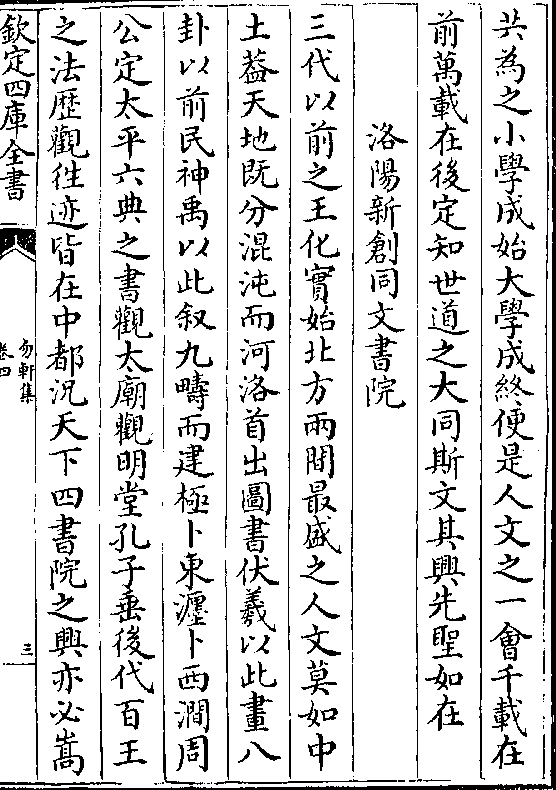 共為之小學成始大學成終便是人文之一會千載在
前萬載在後定知世道之大同斯文其興先聖如在
洛陽新創同文書院
三代以前之王化實始北方兩間最盛之人文莫如中
土葢天地既分混沌而河洛首出圖書伏羲以此畫八
卦以前民神禹以此叙九疇而建極卜東瀍卜西澗周
公定太平六典之書觀太廟觀明堂孔子垂後代百王
之法歴觀徃迹皆在中都况天下四書院之興亦必嵩
欽定四庫全書
勿軒集
卷四
三